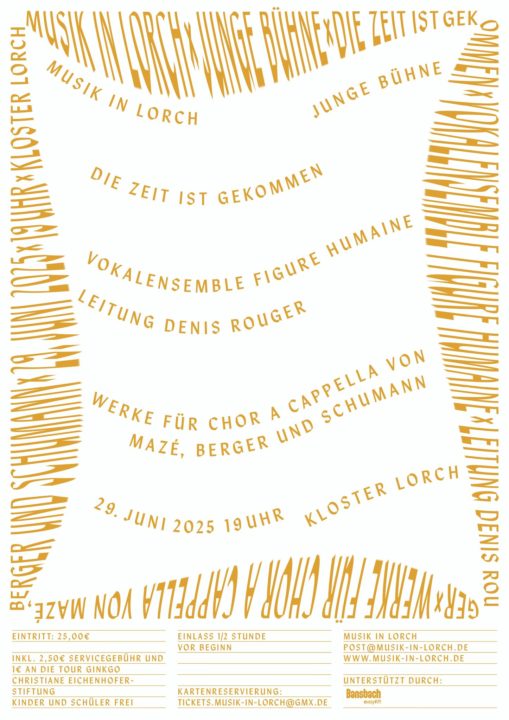 MUSIK IN LORCH × JUNGE BÜHNE × DIE ZEIT IST GEK
OMMEN × VOKALENSEMBLE FIGURE HUMAINE × LEITUNG DENIS ROU
GER × WERKE FÜR CHOR A CAPPELLA VON MAZÉ,
BERGER UND SCHUMANN × 29. JUNI 2025 × 19 UHR × KLOSTER LORCH
MUSIK IN LORCH
JUNGE BÜHNE
DIE ZEIT IST GEKOMMEN
VOKALENSEMBLE FIGURE HUMAINE
LEITUNG DENIS ROUGER
WERKE FÜR CHOR A CAPPELLA VON
MAZÉ, BERGER UND SCHUMANN
29. JUNI 2025 19 UHR
KLOSTER LORCH
EINTRITT: 25,00€
INKL. 2,50€ SERVICEGEBÜHR UND
1€ AN DIE TOUR GINKGO
CHRISTIANE EICHENHOFER-
STIFTUNG
KINDER UND SCHÜLER FREI
EINLASS 1/2 STUNDE
VOR BEGINN
KARTENRESERVIERUNG:
TICKETS.MUSIK-IN-LORCH@GMX.DE
MUSIK IN LORCH
POST@MUSIK-IN-LORCH.DE
WWW.MUSIK-IN-LORCH.DE
UNTERSTÜTZT DURCH:
Bansbach
easylift